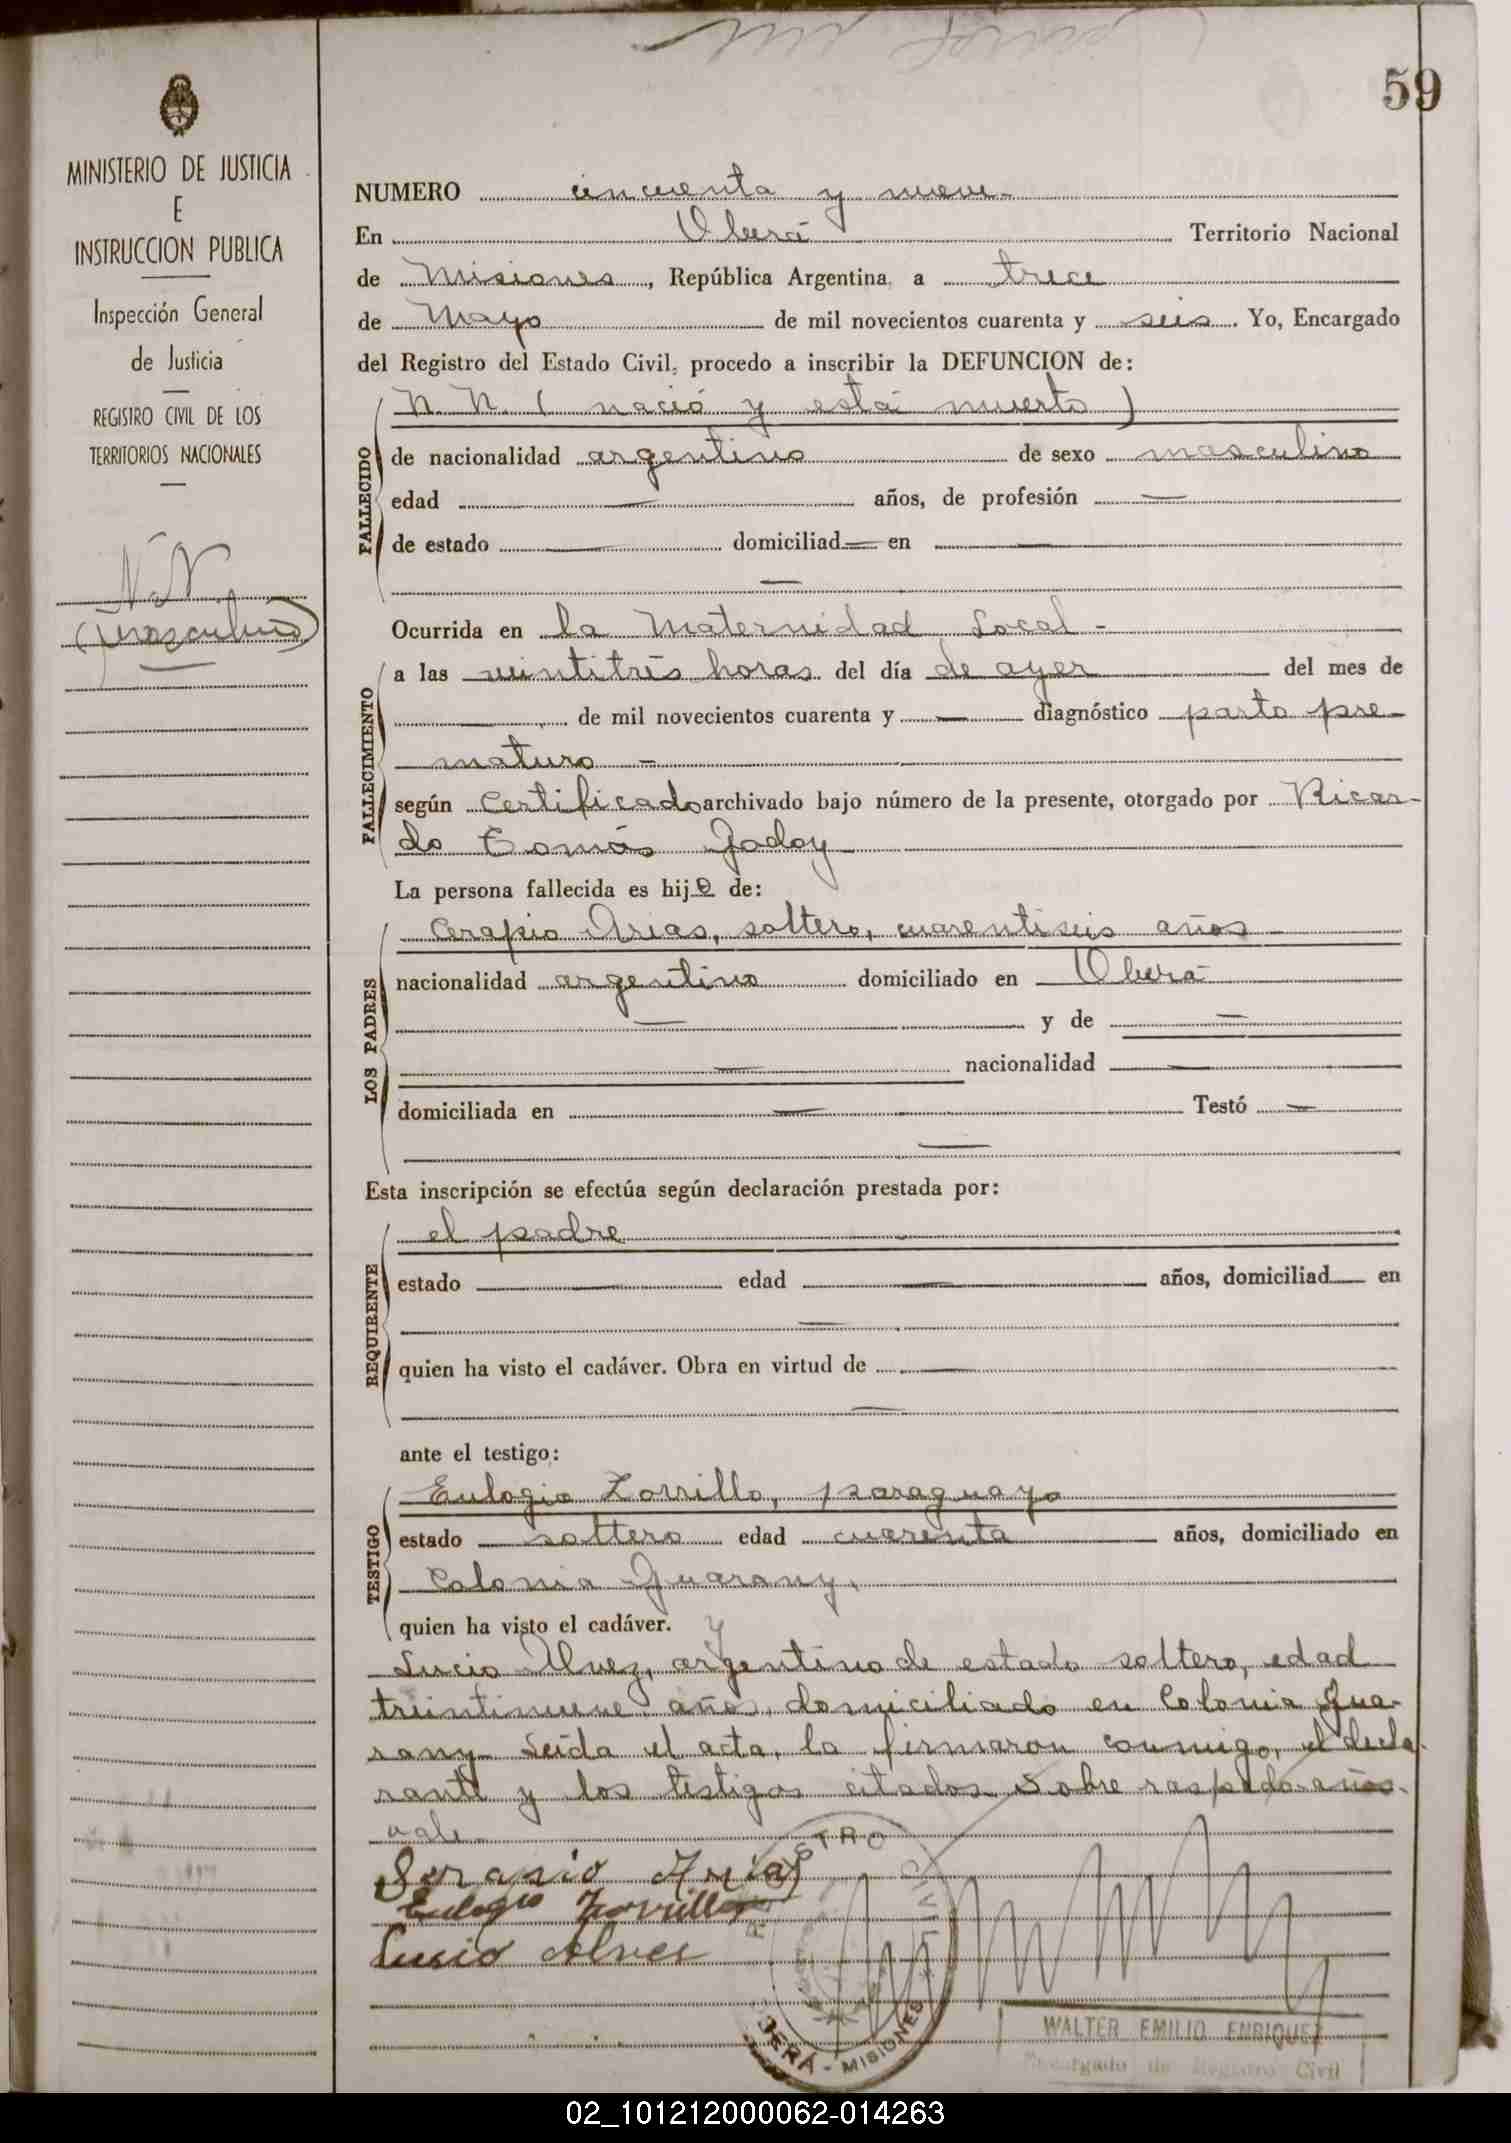 59
MINISTERIO DE JUSTICIA
E
INSTRUCCION PUBLICA
Inspección General
de Justicia
REGISTRO CIVIL DE LOS
TERRITORIOS NACIONALES
N. N.
(masculino)
NUMERO cincuenta y nueve-
En Oberá Territorio Nacional
de Misiones, República Argentina, a trece
de Mayo de mil novecientos cuarenta y seis. Yo, Encargado
del Registro del Estado Civil, procedo a inscribir la DEFUNCION de:
FALLECIDO
N. N. ( nació y está muerto )
de nacionalidad argentino de sexo masculino
edad — años, de profesión —
de estado — domiciliad— en —
—
Ocurrida en la Maternidad Local -
FALLECIMIENTO
a las veintitrés horas del día de ayer del mes de
— de mil novecientos cuarenta y — diagnóstico parto pre-
maturo -
según Certificado archivado bajo número de la presente, otorgado por Ricar-
do Tomás Godoy
La persona fallecida es hijo de:
LOS PADRES
Cerapio Arias, soltero, cuarentiseis años
nacionalidad argentino domiciliado en Oberá
— y de —
— nacionalidad —
domiciliada en — Testó —
—
Esta inscripción se efectúa según declaración prestada por:
REQUIRENTE
el padre
estado — edad — años, domiciliad— en
—
quien ha visto el cadáver. Obra en virtud de —
—
ante el testigo:
TESTIGO
Eulogio Zorrilla, paraguayo
estado soltero edad cuarenta años, domiciliado en
Colonia Guarany,
quien ha visto el cadáver. y
Lucio Alvez, argentino de estado soltero, edad
treintinueve años, domiciliado en Colonia Gua-
rany Leída el acta, la firmaron conmigo, el decla-
rante y los testigos citados Sobre raspado años-
vale
Serapio Arias
Eulogio Zorrilla
Lucio Alves
REGISTRO CIVIL
OBERÁ - MISIONES
WALTER EMILIO ENRIQUEZ
Encargado de Registro Civil
02_101212000062-014263